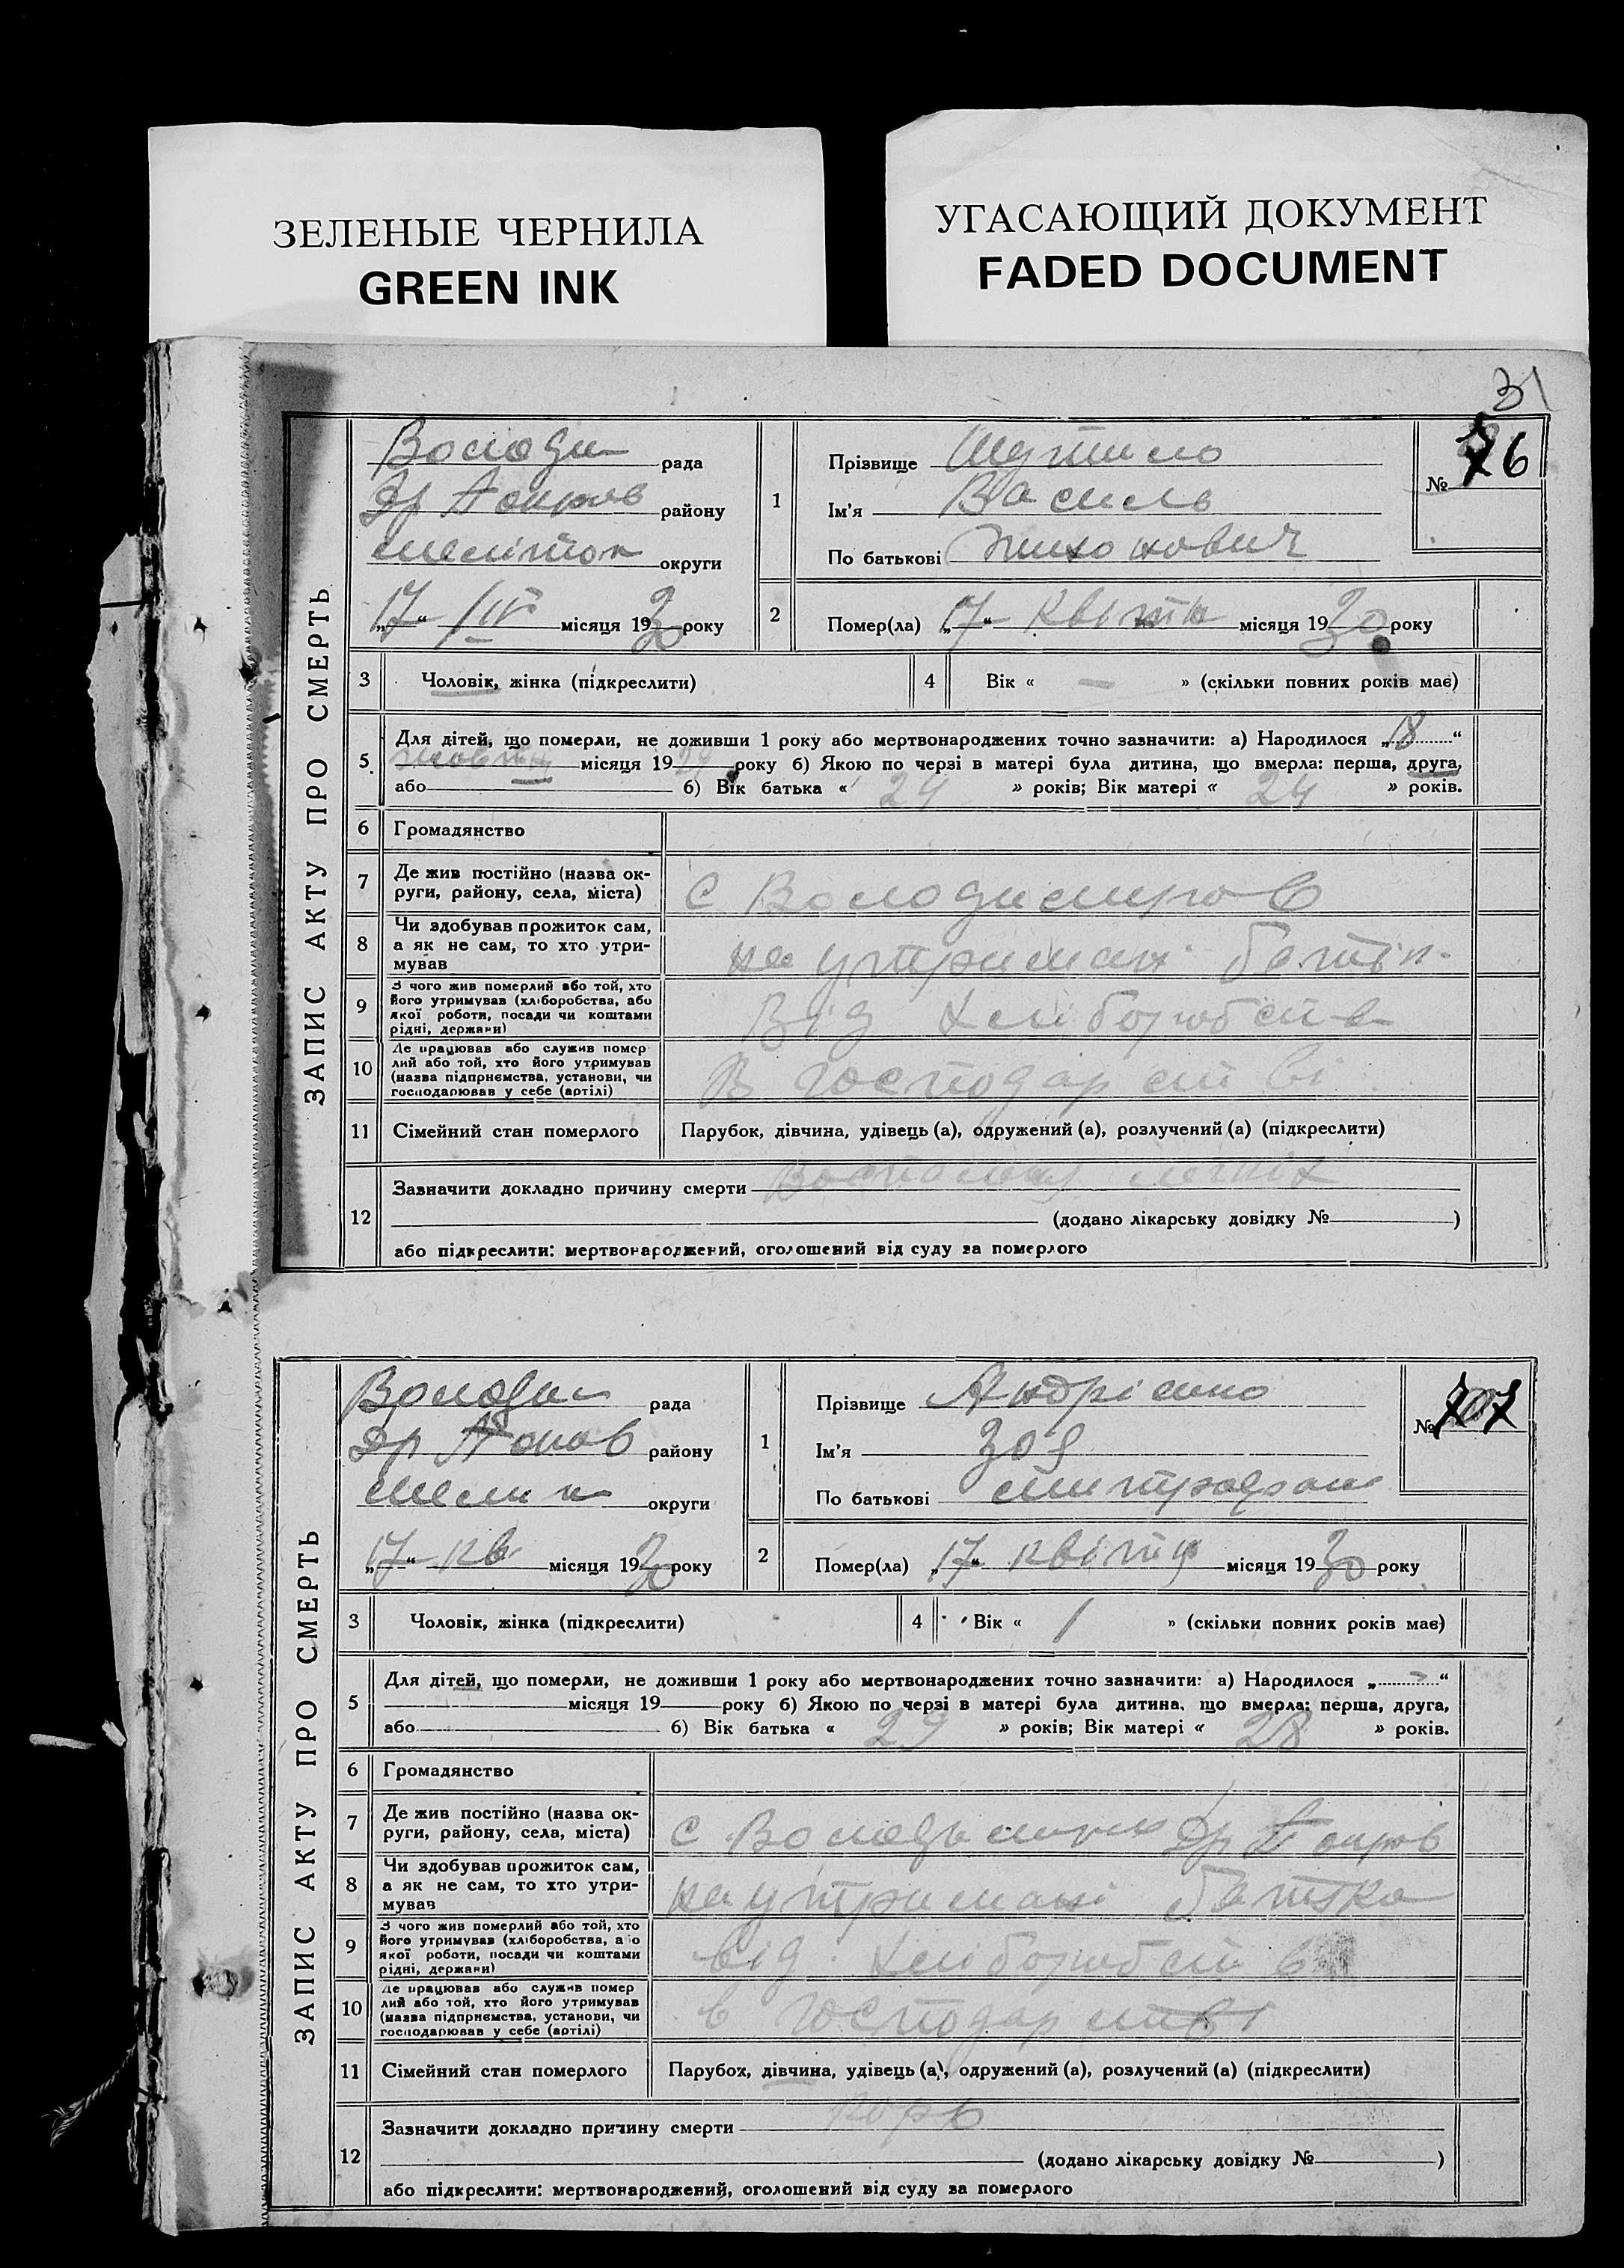 ЗЕЛЕНЫЕ ЧЕРНИЛА
GREEN INK
УГАСАЮЩИЙ ДОКУМЕНТ
FADED DOCUMENT
31
ЗАПИС АКТУ ПРО СМЕРТЬ
Володи рада
району
округи
„17“ IV місяця 1930 року
1
Прізвище
Ім'я Василь
По батькові
№ 76
2
Помер(ла) „17“ квітн місяця 1930 року
3
Чоловік, жінка (підкреслити)
4
Вік « — » (скільки повних років має)
5
Для дітей, що померли, не доживши 1 року або мертвонароджених точно зазначити: а) Народилося „18“
жовтня місяця 1929 року б) Якою по черзі в матері була дитина, що вмерла: перша, друга,
або б) Вік батька « 24 » років; Вік матері « 24 » років.
6
Громадянство
7
Де жив постійно (назва ок-
руги, району, села, міста)
С Володимиров
8
Чи здобував прожиток сам,
а як не сам, то хто утри-
мував
на утриман батьк
9
З чого жив померлий або той, хто
його утримував (хліборобства, або
якої роботи, посади чи коштами
рідні, держави)
Від хліборобств
10
Де працював або служив помер
лий або той, хто його утримував
(назва підприємства, установи, чи
господарював у себе (артілі)
В господарстві
11
Сімейний стан померлого
Парубок, дівчина, удівець (а), одружений (а), розлучений (а) (підкреслити)
12
Зазначити докладно причину смерти
(додано лікарську довідку № )
або підкреслити: мертвонароджений, оголошений від суду за померлого
ЗАПИС АКТУ ПРО СМЕРТЬ
Володи рада
району
округи
„17“ кв місяця 1930 року
1
Прізвище Андрієнко
Ім'я Зоя
По батькові Митрофан
№
2
Помер(ла) „17“ квітня місяця 1930 року
3
Чоловік, жінка (підкреслити)
4
Вік « 1 » (скільки повних років має)
5
Для дітей, що померли, не доживши 1 року або мертвонароджених точно зазначити: а) Народилося „ — “
місяця 19 року б) Якою по черзі в матері була дитина, що вмерла: перша, друга,
або б) Вік батька « 29 » років; Вік матері « 28 » років.
6
Громадянство
7
Де жив постійно (назва ок-
руги, району, села, міста)
8
Чи здобував прожиток сам,
а як не сам, то хто утри-
мував
на утримані батька
9
З чого жив померлий або той, хто
його утримував (хліборобства, або
якої роботи, посади чи коштами
рідні, держави)
від хліборобств
10
Де працював або служив помер
лий або той, хто його утримував
(назва підприємства, установи, чи
господарював у себе (артілі)
в господарстві
11
Сімейний стан померлого
Парубок, дівчина, удівець (а), одружений (а), розлучений (а) (підкреслити)
12
Зазначити докладно причину смерти корь
(додано лікарську довідку № )
або підкреслити: мертвонароджений, оголошений від суду за померлого